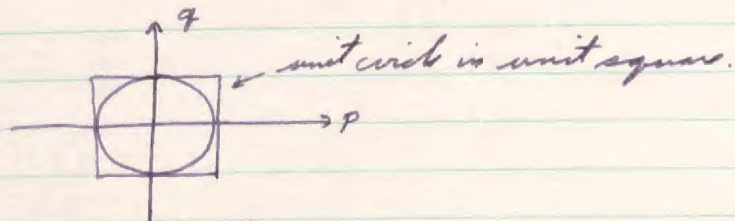 q
unit circle in unit square.
p